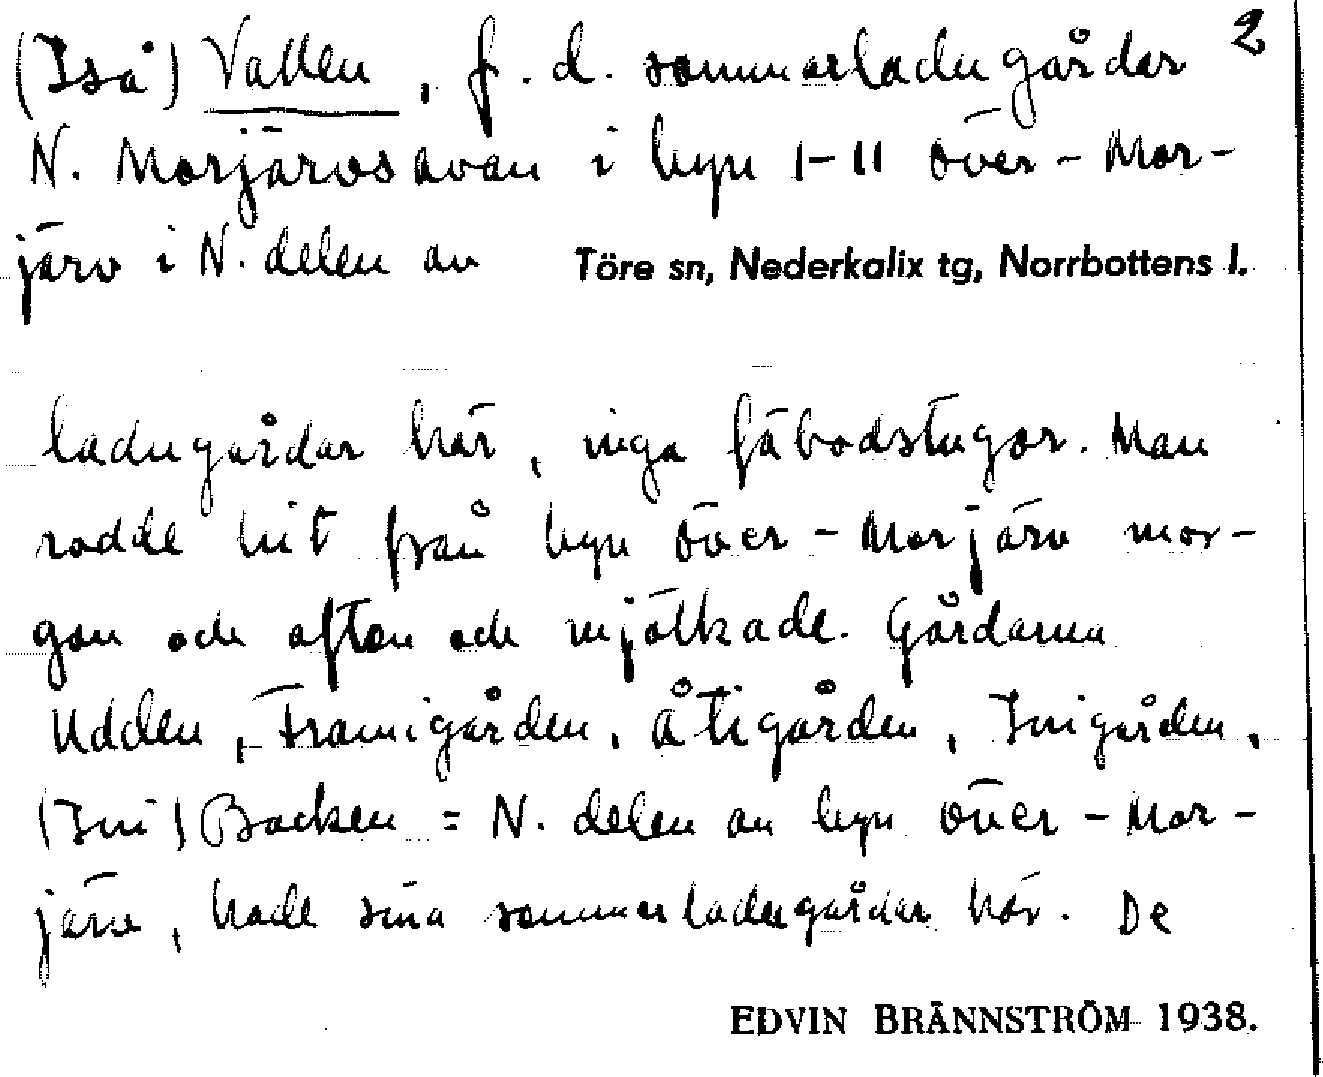 (Iså) Vallen, f.d. sommarladugårdar 2
N. Morjärvsavan i byn 1-11 Över-Mor-
järv i N. delen av Töre sn, Nederkalix tg, Norrbottens l.
ladugårdar här, inga fäbodstugor. Man
rodde hit från byn Över-Morjärv mor-
gon och afton och mjölkade. Gårdarna
Udden, Framigården, Åtigården, Inigården,
(Ini) Backen = N. delen av byn Över-Mor-
järv, hade sina sommarladugårdar här. De
EDVIN BRÄNNSTRÖM 1938.